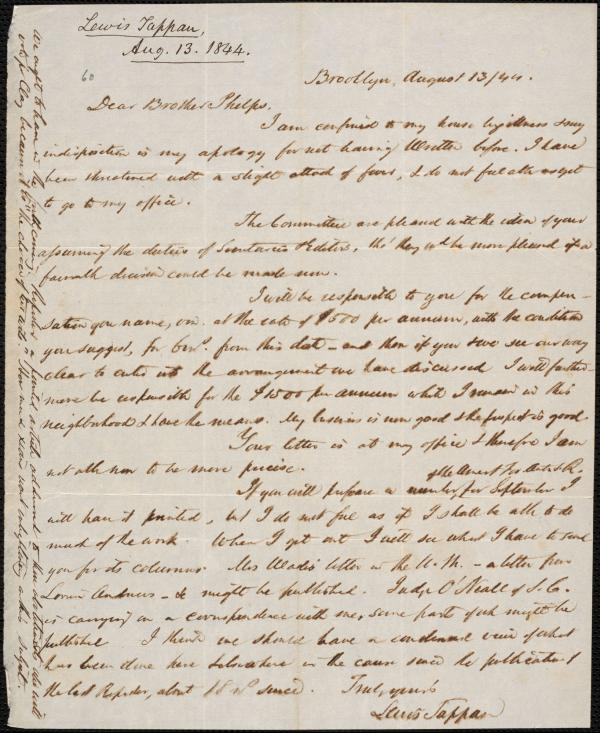 Lewis Tappan,
Aug. 13. 1844.
60
Brooklyn, August 13/44.
Dear Brother Phelps,
I am confined to my house by illness & my
indisposition is my apology for not having written before. I have
been threatened with a slight attack of fever, & do not feel able as yet
to go to my office.
The Committee are pleased with the idea of your
assuming the duties of Secretary & Editor, tho' they wd be more pleased if a
favorable decision could be made now.
I will be responsible to you for the compen-
sation you name, viz. at the rate of $1500 per annum, with the condition
you suggest, for 6 mos. from this date - and then if you & we see our way
clear to enter into the arrangement we have discussed I will further-
more be responsible for the $1500 per annum while I remain in this
neighborhood & have the means. My business is now good & the prospect is good.
Your letter is at my office & therefore I am
not able now to be more precise.
of the Amer. & For. Anti S. R.
If you will prepare a number for September I
will have it printed, but I do not feel as if I shall be able to do
much of the work. When I get out I will see what I have to send
you for its columns. Mrs letter in the U. M. - a letter from
Lorin Andrews - & might be published. Judge O'Neall of S. C.
is carrying on a correspondence with me, some parts of wh might be
published I think we should have a condensed view of what
has been done here & elsewhere in the cause since the publication of
the last Reporter, about 18 mos since. Truly yours
Lewis Tappan
We ought to have in the forthcoming Reporter a article addressed to those abolitionists who will
vote for Clay because it is the choice of two evils